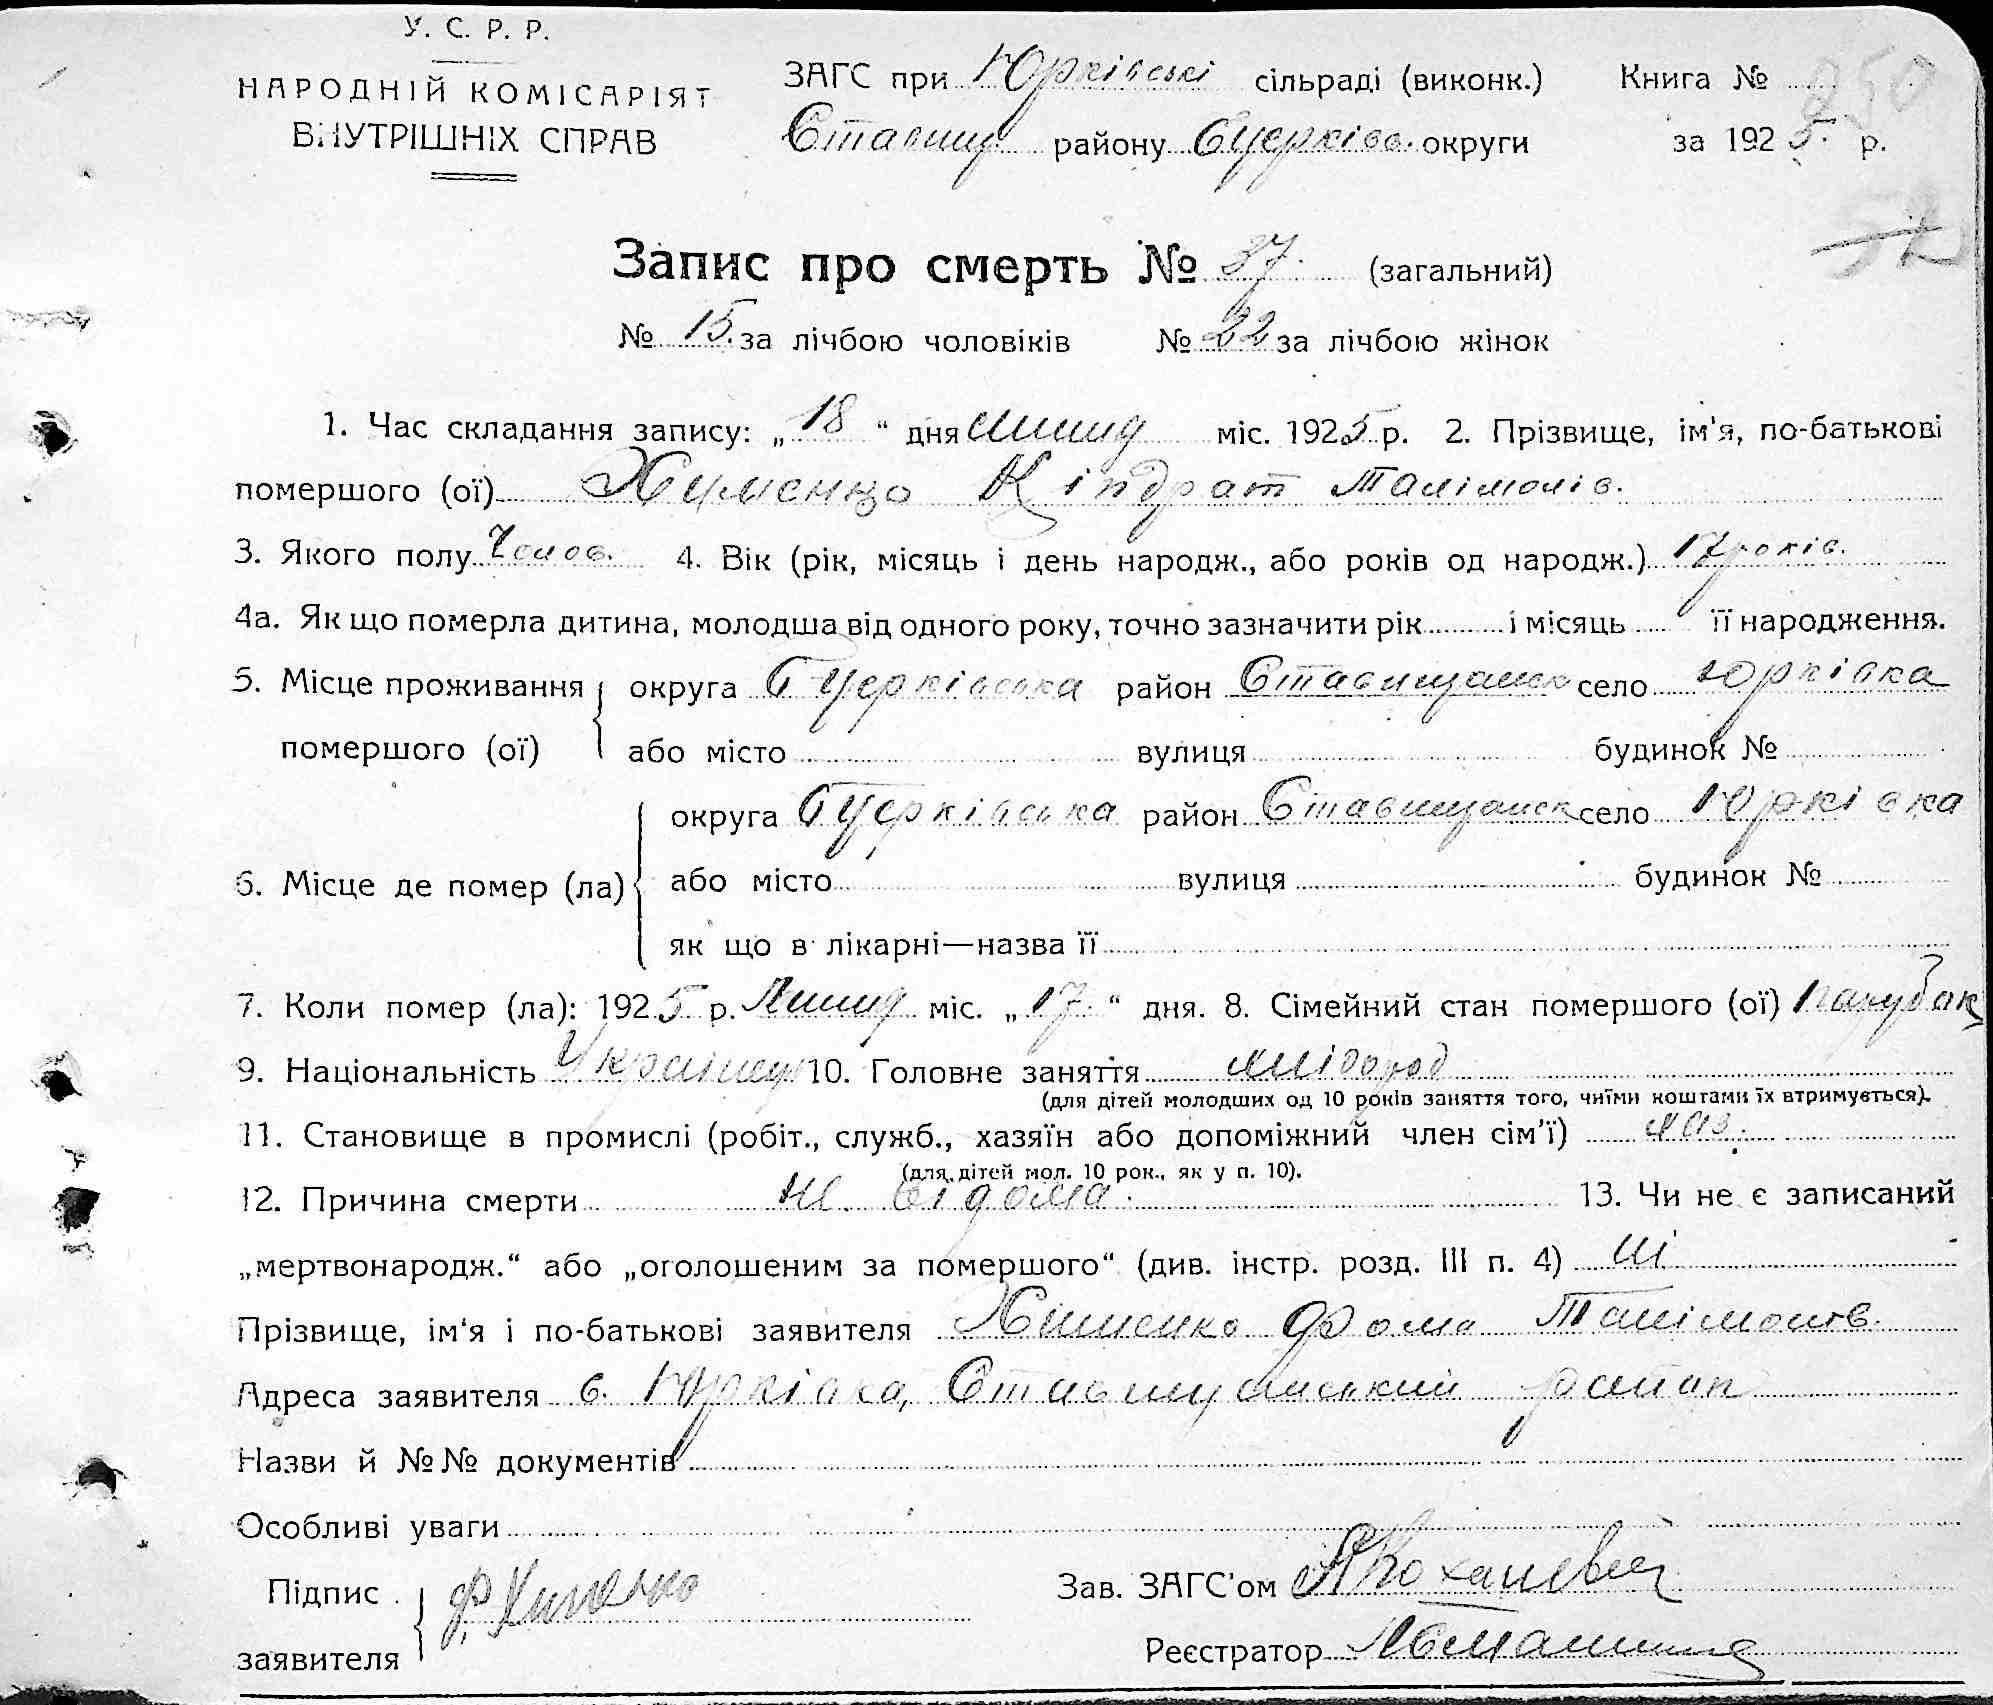 У. С. Р. Р.
НАРОДНІЙ КОМІСАРІЯТ
ВНУТРІШНІХ СПРАВ
ЗАГС при Юрківські сільраді (виконк.) Книга №
Ставищ району Бцерківс. округи за 1925 р.
250
52
Запис про смерть № 37. (загальний)
№ 15. за лічбою чоловіків № 22 за лічбою жінок
1. Час складання запису: „18“ дня Липня міс. 1925 р. 2. Прізвище, ім'я, по-батькові
помершого (ої) Хименко Кіндрат Талімонів.
3. Якого полу Чолов. 4. Вік (рік, місяць і день народж., або років од народж.) 17 років.
4а. Як що померла дитина, молодша від одного року, точно зазначити рік і місяць її народження.
5. Місце проживання помершого (ої) округа Бцерківська район Ставищанськ село Юрківка
або місто вулиця будинок №
6. Місце де помер (ла) округа Бцерківська район Ставищанськ село Юрківка
або місто вулиця будинок №
як що в лікарні—назва її
7. Коли помер (ла): 1925 р. Липня міс. „17.“ дня. 8. Сімейний стан помершого (ої) Парубак
9. Національність Українец 10. Головне заняття хлібороб
(для дітей молодших од 10 років заняття того, чиїми коштами їх втримується).
11. Становище в промислі (робіт., служб., хазяїн або допоміжний член сім'ї) хаз.
(для дітей мол. 10 рок., як у п. 10).
12. Причина смерти не відома. 13. Чи не є записаний
„мертвонародж.“ або „оголошеним за помершого“ (див. інстр. розд. III п. 4) ні
Прізвище, ім'я і по-батькові заявителя Хименко Фома Талімонів.
Адреса заявителя с. Юрківка, Ставищанський район
Назви й №№ документів
Особливі уваги
Підпис заявителя Ф. Хименко
Зав. ЗАГС'ом
Реєстратор